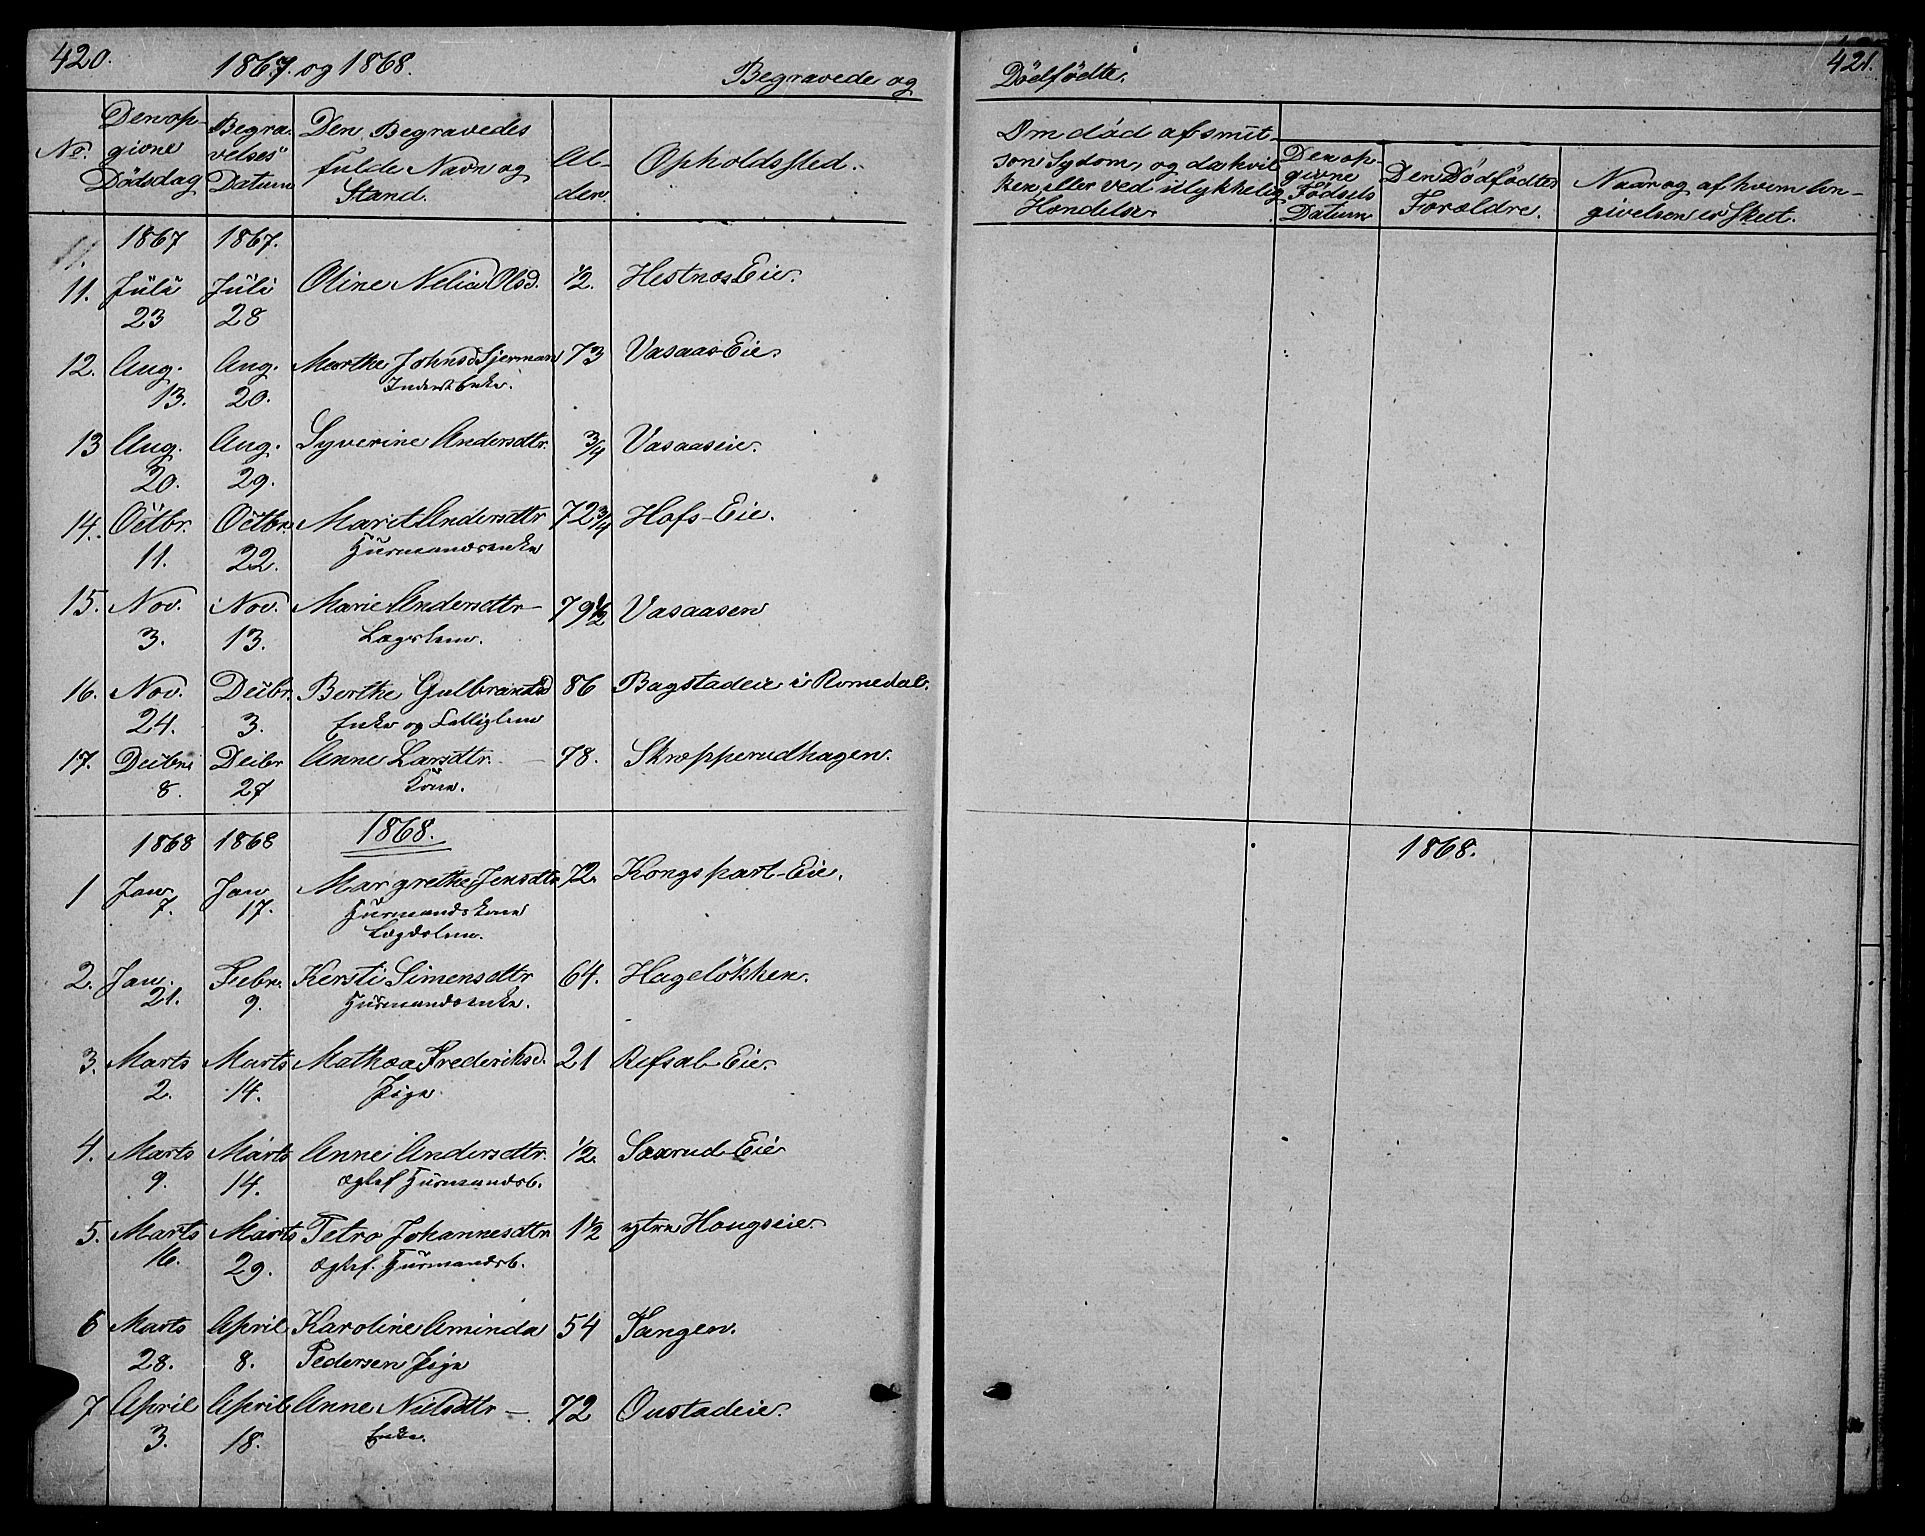 420. 1867. og 1868. Begravede og
No. Den opgivne Dödsdag Begravelses Datum Den Begravedes fulde Navn og Stand. Alder. Opholdssted.
1867 1867.
11. Juli 23 Juli 28 Oline Nelia Olsd. 1/2. Hestnæs Eie.
12. Aug. 13. Aug. 20. Marthe Johnsd 73 Vasaas-Eie.
Inderst Enke.
13 Aug. 20. Aug. 29. Syverine Andersdtr. 3/4 Vasaaseie.
14. Octbr. 11. Octbr. 22. Marit Andersdtr 72 3/4 Hofs-Eie.
Husmandsenke
15. Nov. 3. Nov. 13. Marie Andersdtr 79 1/2 Vasaasen
Lægslem.
16. Nov. 24. Decbr. 3. Berthe Gulbrandsd 86 Bagstadeie i Romedal.
Enke og Fattiglem
17. Decbr. 8. Decbr 27 Anne Larsdtr. 78. Skræpperudhagen.
Kone.
1868 1868 1868.
1 Jan 7. Jan 17. Margrethe Jensdtr 72. Kongspart-Eie.
Husmandskone
Lægdslem.
2. Jan. 21. Febr. 9. Kersti Simensdtr 64. Hagelökken.
Husmandsenke.
3. Marts 2. Marts 14. Mathea Frederiksd. 21 Refsal-Eie.
Pige
4. Marts 9. Marts 14. Anne Andersdtr. 1/2. Saxrud-Eie
ægtef Husmandsb.
5. Marts 16. Marts 29. Petra Johannesdtr 1 1/2 ytre Hougseie
ægtef. Husmandsb.
6 Marts 28. April 8. Karoline Aminda 54 Tangen.
Pedersen Pige
7 April 3. April 18. Anne Nielsdtr 72 Oustadeie.
Enke.
Dödfødte. 421.
Om död af smitsom Sydom, og da hvilken, eller ved ulykkelig Hændelse. Den opgivne Födsels Datum Den Dödfödtes Forældre. Naar og af hvem Angivelsen er skeet.
1868.